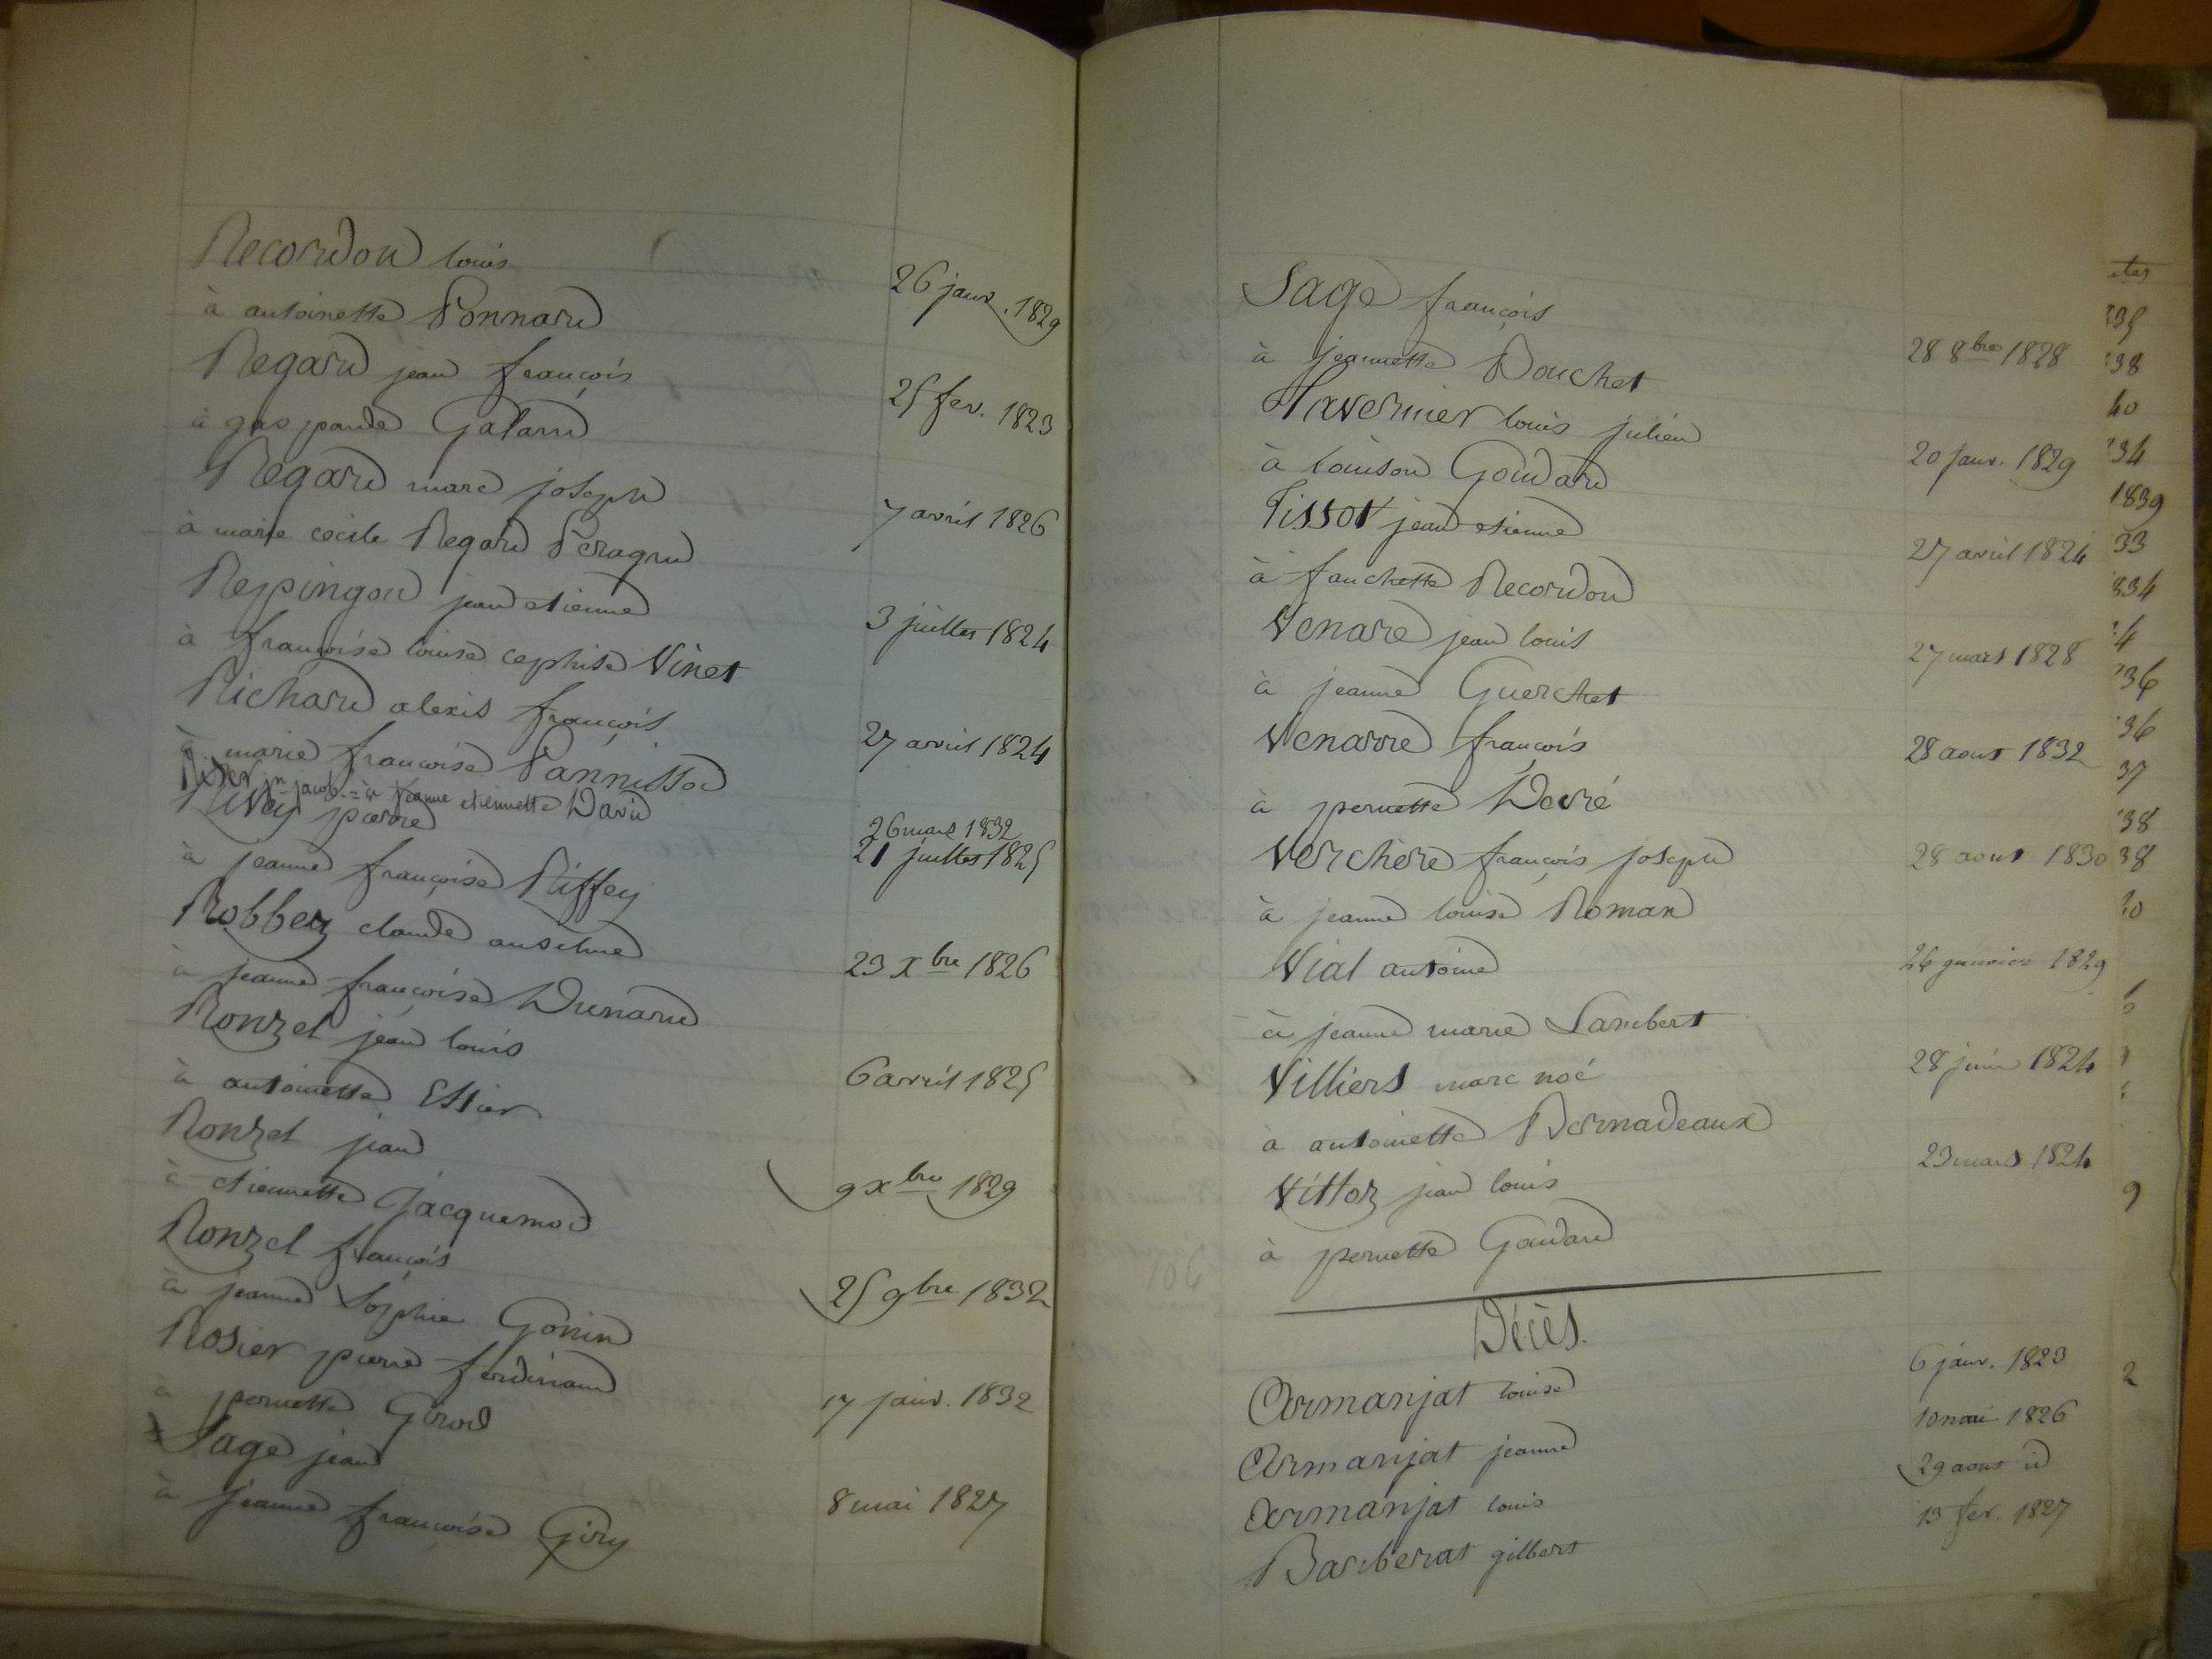 Recordon louis
à antoinette Ponnard 26 janv. 1829
Regard jean françois
à gasparde Galand 25 fev. 1823
Regard marc joseph
à marie cecile Regard Peragrud 7 avril 1826
Reppingon jean etienne
à françoise louise cephise Vinet 3 juillet 1824
Richard alexis françois
à marie françoise Pannissod 27 avril 1824
jn jacob = à jeanne etiennette David 26 mars 1832
Rivey pierre 21 juillet 1825
à jeanne françoise Riffey
Robbez claude anselme
à jeanne françoise Dunand 23 Xbre 1826
Ronzel jean louis
à antoinette Essier 6 avril 1825
Ronzel jean
à etiennette Jacquemod 9 xbre 1829
Ronzel françois
à jeanne Sophie Gonin 25 9bre 1832
Rosier pierre ferdinand
à pernette Girod 17 janv. 1832
Sage jean
à jeanne françoise Giry 8 mai 1827
Sage françois
à jeannette Bouchet 28 8bre 1828
Tavernier louis julien
à louison Goudard 20 janv. 1829
Tissot jean etienne
à fanchette Recordon 27 avril 1824
Venare jean louis
à jeanne Guerchet 27 mars 1828
Venarre françois
à pernette Devré 28 aout 1832
Verchere françois joseph
à jeanne louise Roman 28 aout 1830
Vial antoine
à jeanne marie Lambert 26 janvier 1829
Villiers marc noé
à antoinette Bernadeaux 28 juin 1824
Vittoz jean louis
à pernette Goudard 23 mars 1824
Décès.
Armanjat louise 6 janv. 1823
Armanjat jeanne 10 mai 1826
Armanjat louis 29 aout id
Barberat gilbert 13 fev. 1827